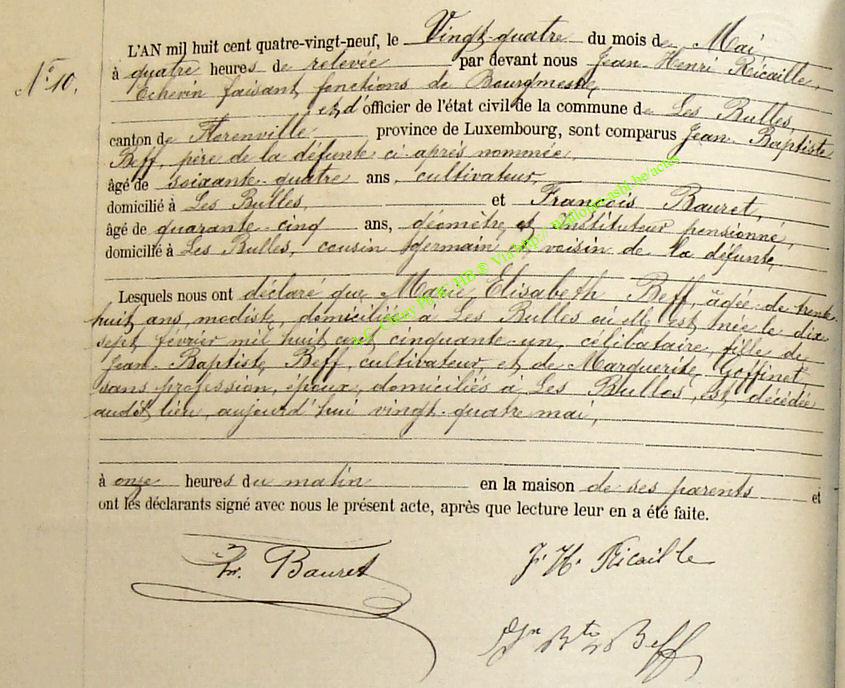 L'AN mil huit cent quatre-vingt-neuf, le Vingt-quatre du mois de Mai
N° 10. à quatre heures de relevée par devant nous Jean-Henri Ricaille,
Echevin faisant fonctions de Bourgmestre,
et d'officier de l'état civil de la commune de Les Bulles,
canton de Florenville province de Luxembourg, sont comparus Jean-Baptiste
Beff, père de la défunte ci-après nommée,
âgé de soixante-quatre ans, cultivateur,
domicilié à Les Bulles, et François Bauret,
âgé de quarante-cinq ans, géomètre et instituteur pensionné,
domicilié à Les Bulles, cousin germain et voisin de la défunte,
Lesquels nous ont déclaré que Marie Elisabeth Beff, âgée de trente
huit ans, modiste, domiciliée à Les Bulles où elle est née le dix
sept février mil huit cent cinquante-un, célibataire, fille de
Jean-Baptiste Beff, cultivateur, et de Marguerite Goffinet,
sans profession, époux, domiciliés à Les Bulles, est décédée
audit lieu, aujourd'hui vingt-quatre mai,
à onze heures du matin en la maison de ses parents et
ont les déclarants signé avec nous le présent acte, après que lecture leur en a été faite.
Fr. Bauret J. H. Ricaille
Jn Bte Beff